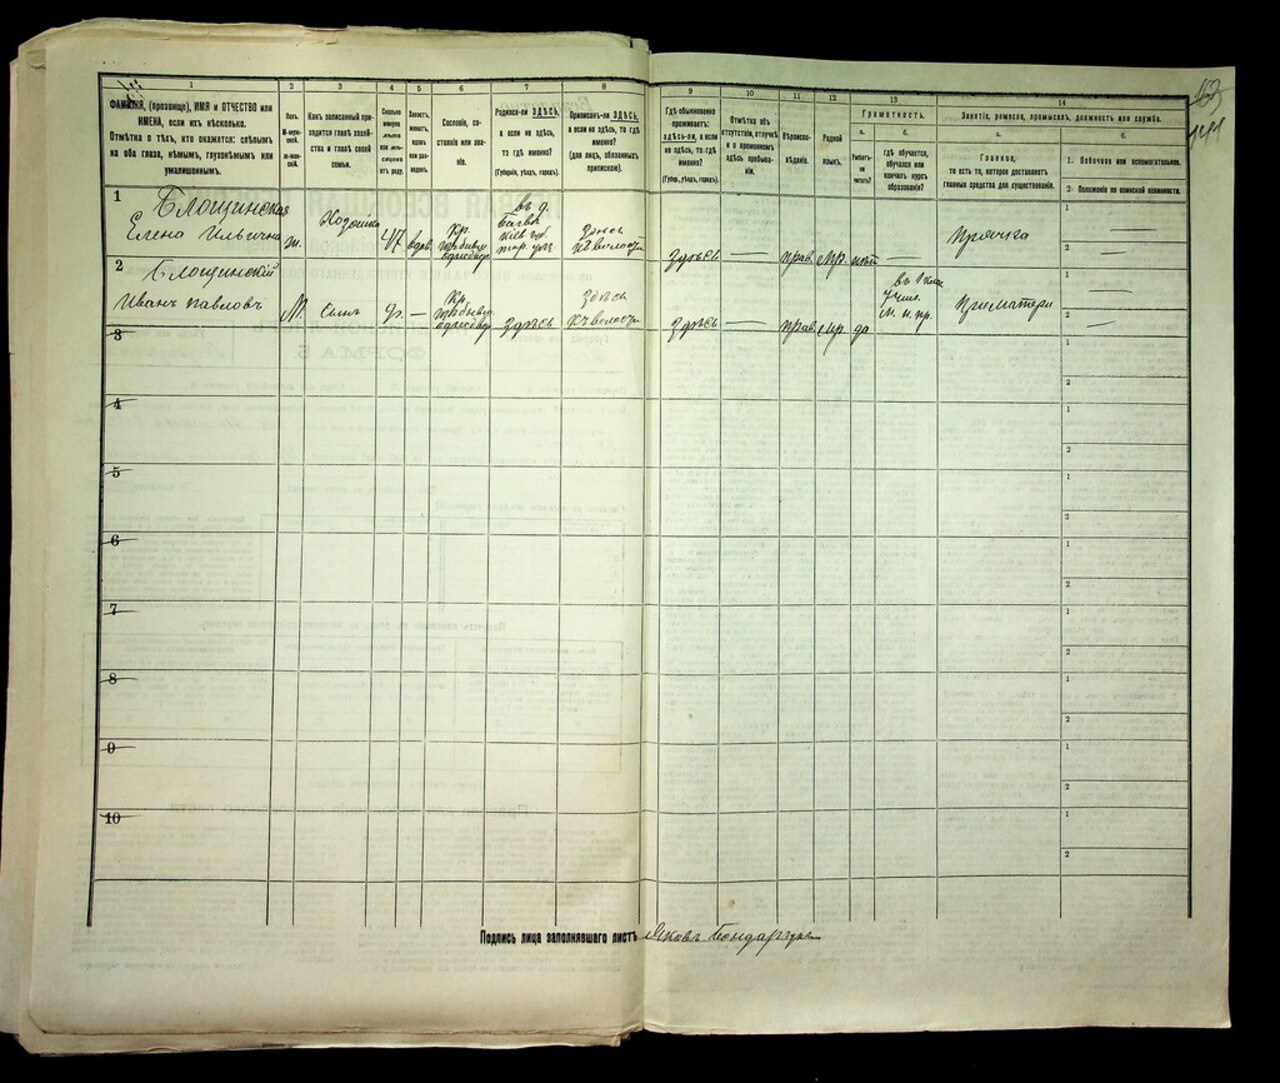 1
ФАМИЛІЯ, (прозвище), ИМЯ и ОТЧЕСТВО или
ИМЕНА, если ихъ нѣсколько.
Отмѣтка о тѣхъ, кто окажется: слѣпымъ
на оба глаза, нѣмымъ, глухонѣмымъ или
умалишеннымъ.
2
Полъ.
3
Какъ записанный при-
ходится главѣ хозяй-
ства и главѣ своей
семьи.
4
Сколько
отъ роду.
5
6
Сословіе, со-
стояніе или зва-
ніе.
7
Родился-ли ЗДѢСЬ,
а если не здѣсь,
то гдѣ именно?
(Губернія, уѣздъ, городъ).
8
Приписанъ-ли ЗДѢСЬ,
а если не здѣсь, то гдѣ
именно?
(для лицъ, обязанныхъ
припискою).
9
Гдѣ обыкновенно
проживаетъ:
здѣсь-ли, а если
не здѣсь, то гдѣ
именно?
(Губер., уѣздъ, городъ).
10
Отмѣтка объ
отсутствіи, отлучкѣ
и о временномъ
здѣсь пребыва-
ніи.
11
Вѣроиспо-
вѣданіе.
12
Родной
языкъ.
13
Грамотность.
а.
Умѣетъ-
ли
читать?
б.
гдѣ обучается,
обучался или
кончилъ курсъ
образованія?
14
Занятіе, ремесло, промыселъ, должность или служба.
а.
Главное,
то есть то, которое доставляетъ
главныя средства для существованія.
б.
1. Побочное или вспомогательное.
2. Положеніе по воинской повинности.
1
Блощинская
Елена Ильична
ж.
Хозяйка
47
вдов.
Кр.
въ д.
здѣсь
къ волости
здѣсь
—
прав.
Мр.
нѣтъ
—
Прачка
1
—
2
—
2
Блощинскій
Иванъ Павловъ
М.
Сынъ
9.
—
Кр.
здѣсь
здѣсь
къ волости
здѣсь
—
прав.
Мр.
да
въ 1 клас.
Учил.
М. н. пр.
При матери
1
—
2
—
3
1
2
4
1
2
5
1
2
6
1
2
7
1
2
8
1
2
9
1
2
10
1
2
Подпись лица заполнявшаго листъ Яковъ Бондарчукъ